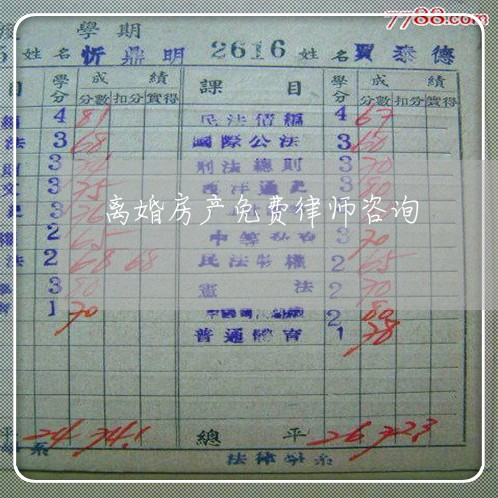 7788.com
學期
5 姓名 忻鼎明 2616 姓名 賈泰德
目 學分 成績 課目 學分 成績
分數 扣分 實得 分數 扣分 實得
4 81 民法債編 4 67
法 3 68 國際公法 3 60
3 刑法總則 3 70
文 3 75 西洋通史 3 80
3 76 3
離婚房产免费律师咨询
權 2 65 3 70
法 2 68 68 民法物權 2 65
3 80 憲法 2 70
1 70 2 80
普通體育 1 78
平 24 74.1 總平 26 72.3
系 法律學系